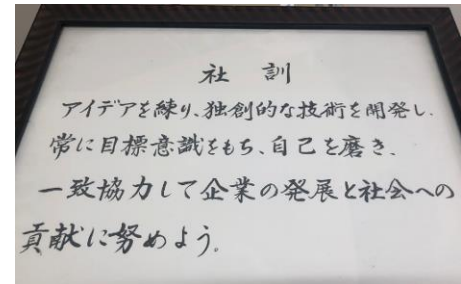 社訓
アイデアを練り、独創的な技術を開発し、
常に目標意識をもち、自己を磨き、
一致協力して企業の発展と社会への
貢献に努めよう。